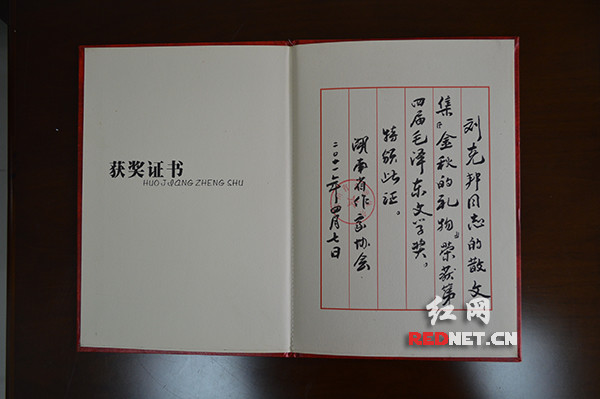 获奖证书
HUO JIANG ZHENG SHU
刘克邦同志的散文
集《金秋的礼物》荣获第
四届毛泽东文学奖。
特颁此证。
湖南省作家协会
二〇一一年四月七日
红网
REDNET.CN